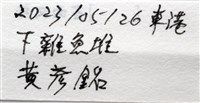 2023/05/26 東港
下雜魚堆
黃彥銘